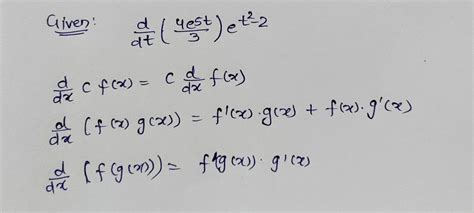 Given: d/dt (4e5t/3) e^t²-2
d/dx c f(x) = c d/dx f(x)
d/dx (f(x) g(x)) = f'(x) · g(x) + f(x) · g'(x)
d/dx (f(g(x))) = f'(g(x)) · g'(x)